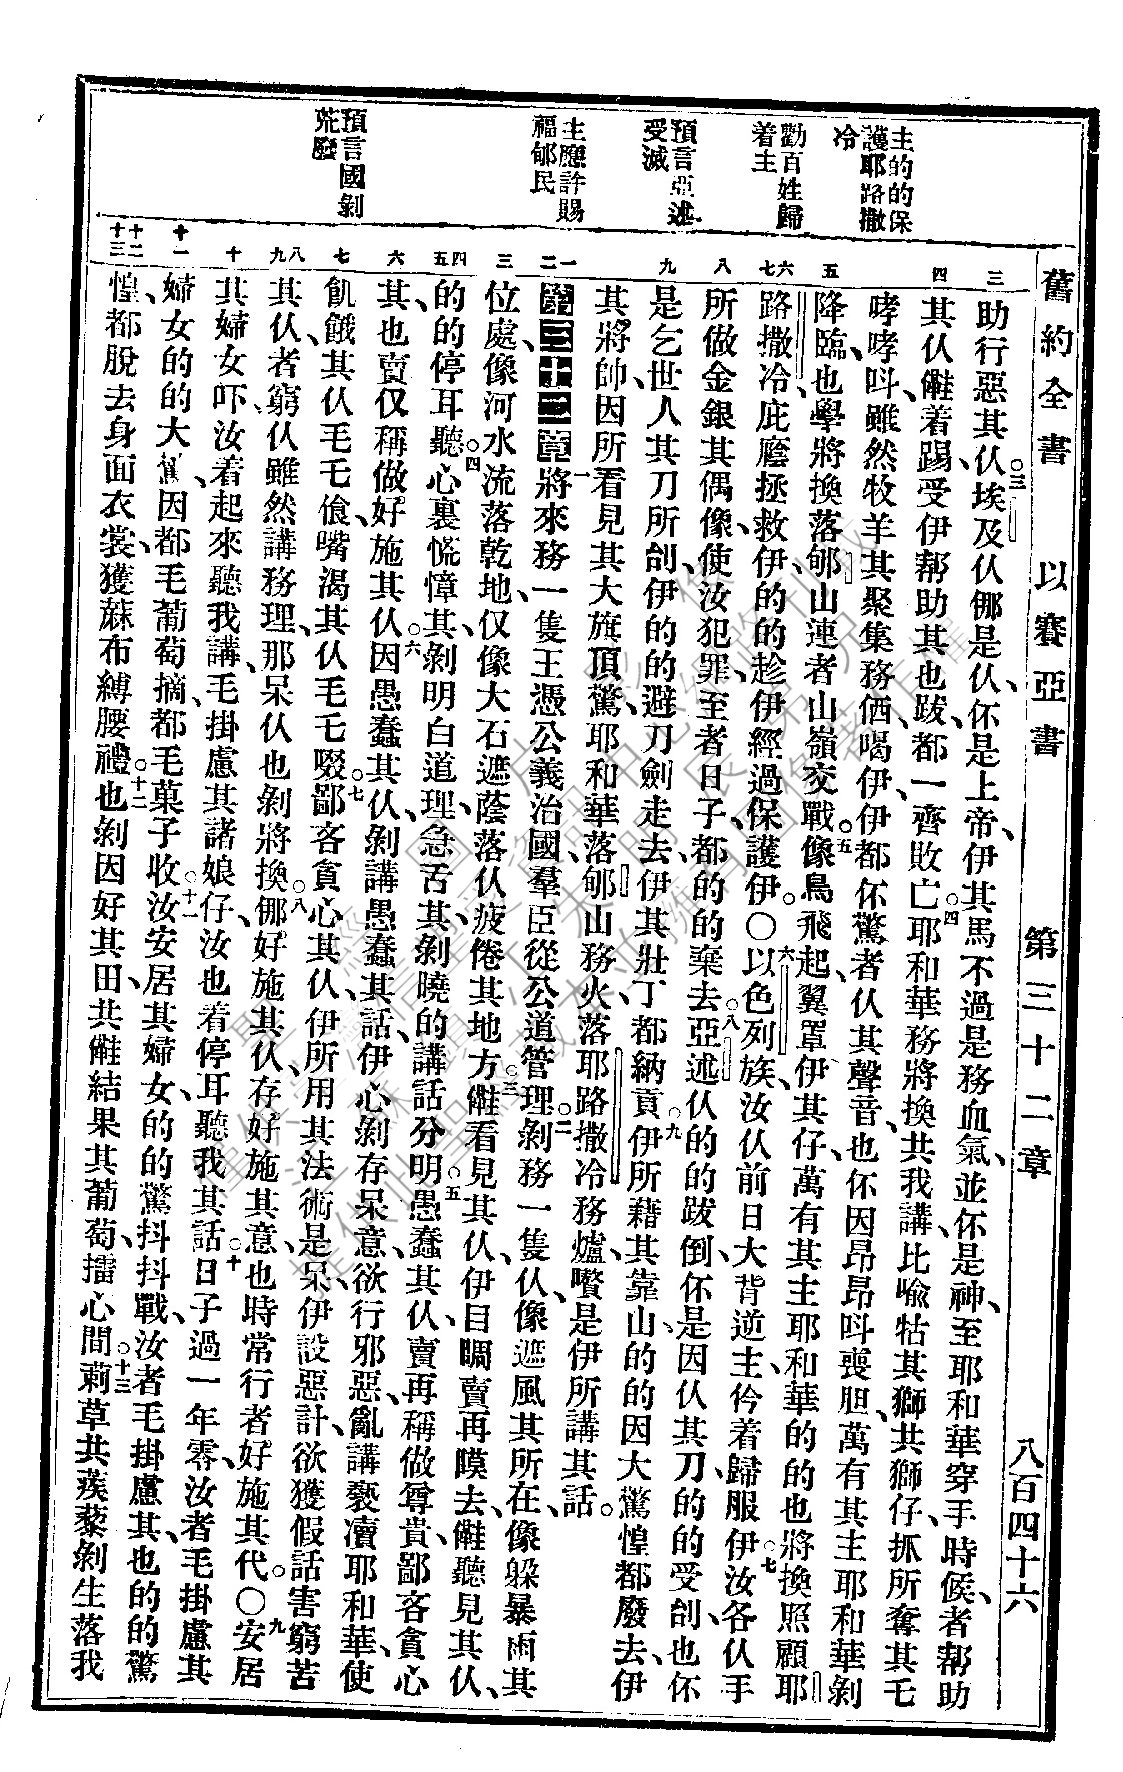 舊約全書 以賽亞書 第三十二章 八百四十六
主的的保
護耶路撒
冷
勸百姓歸
着主
預言亞述
受滅
主應許賜
福郇民
預言國剝
荒廢
三 四 五 六 七 八 九 一 二 三 四 五 六 七 八 九 十 十一 十二 十三
助行惡其仈○三埃及仈㑚是仈、伓是上帝、伊其馬不過是務血氣、並伓是神、至耶和華穿手時候、者幫助
其仈、儺着踢、受伊幫助其也跋、都一齊敗亡○四耶和華務將換共我講、比喩牯其獅、共獅仔、抓所奪其毛
哮哮呌、雖然牧羊其聚集務価喝伊、伊都伓驚者仈其聲音、也伓因昂昂呌喪胆、萬有其主耶和華剝
降臨、也學將換落郇山連者山嶺交戰○五像鳥飛起、翼罩伊其仔、萬有其主耶和華的的也將換照顧耶
路撒冷、庇廕拯救伊的的趁伊經過保護伊○六以色列族、汝仈前日大背逆主、衿着歸服伊○七汝各仈手
所做金銀其偶像、使汝犯罪、至者日子、都的的棄去○八亞述仈的的跋倒、伓是因仈其刀、的的受刣、也伓
是乞世人其刀所刣、伊的的避刀劍走去、伊其壯丁都納貢○九伊所藉其靠山、的的因大驚惶都廢去、伊
其將帥因所看見其大旗頂驚、耶和華落郇山務火、落耶路撒冷務爐、嚽是伊所講其話。
第三十二章一將來務一隻王憑公義治國、羣臣從公道管理○二剝務一隻仈、像遮風其所在、像躲暴雨其
位處、像河水流落乾地、仅像大石遮蔭落仈疲倦其地方○三儺看見其仈、伊目睭賣再瞙去、儺聽見其仈、
的的停耳聽○四心裏慌慞其、剝明白道理、急舌其、剝曉的講話分明○五愚蠢其仈、賣再稱做尊貴、鄙吝貪心
其、也賣仅稱做好施其仈○六因愚蠢其仈、剝講愚蠢其話、伊心剝存呆意、欲行邪惡、亂講褻瀆耶和華、使
飢餓其仈毛乇偹、嘴渴其仈毛乇啜○七鄙吝貪心其仈、伊所用其法術是呆、伊設惡計、欲獲假話害窮苦
其仈、者窮仈雖然講務理、那呆仈也剝將換㑚○八好施其仈、存好施其意、也時常行者好施其代○九安居
其婦女吓、汝着起來聽我講、毛掛慮其諸娘仔、汝也着停耳聽我其話○十日子過一年零、汝者毛掛慮其
婦女、的的大驚、因都毛葡萄摘、都毛菓子收○十一汝安居其婦女、的的驚抖抖戰、汝者毛掛慮其、也的的驚
惶、都脫去身面衣裳、獲蔴布縛腰禮○十二也剝因好其田、共儺結果其葡萄、擂心間○十三莿草共蒺藜剝生落我